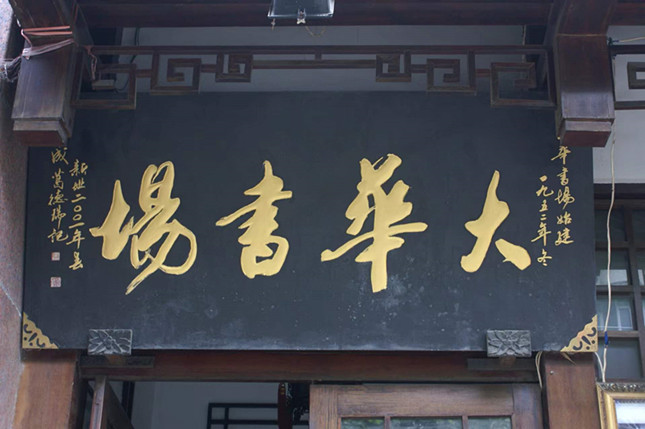 華書場始建
一九五二年冬
大華書場
新业二〇〇一年春
葛德瑞記